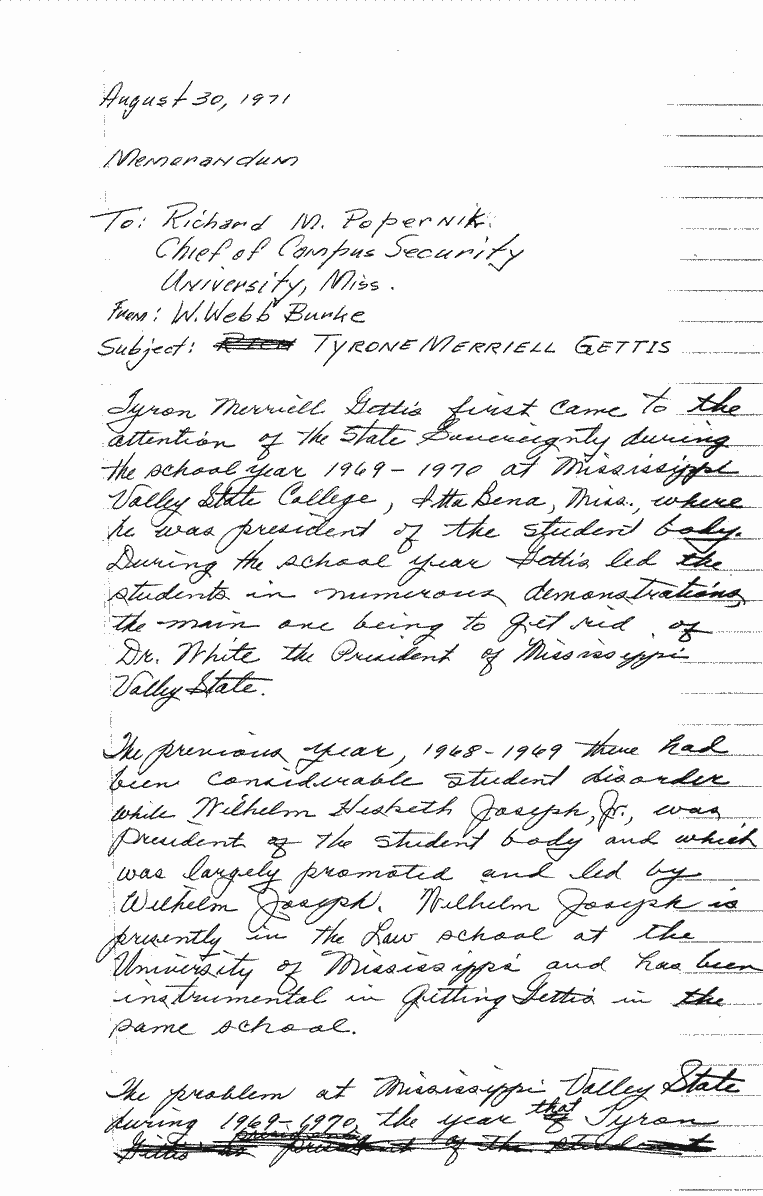 August 30, 1971
Memorandum
To: Richard M. Popernik
Chief of Campus Security
University, Miss.
From: W. Webb Burke
Subject: TYRONE MERRIELL GETTIS
Tyron Merriell Gettis first came to the
attention of the State Sovereignty during
the school year 1969-1970 at Mississippi
Valley State College, Itta Bena, Miss., where
he was president of the student body.
During the school year Gettis led the
students in numerous demonstrations,
the main one being to get rid of
Dr. White the President of Mississippi
Valley State.
The previous year, 1968-1969 there had
been considerable student disorder
while Wilhelm Hesketh Joseph, Jr., was
president of the student body and which
was largely promoted and led by
Wilhelm Joseph. Wilhelm Joseph is
presently in the Law school at the
University of Mississippi and has been
instrumental in getting Gettis in the
same school.
The problem at Mississippi Valley State
during 1969-1970, the year that Tyron
Gettis as president of the student